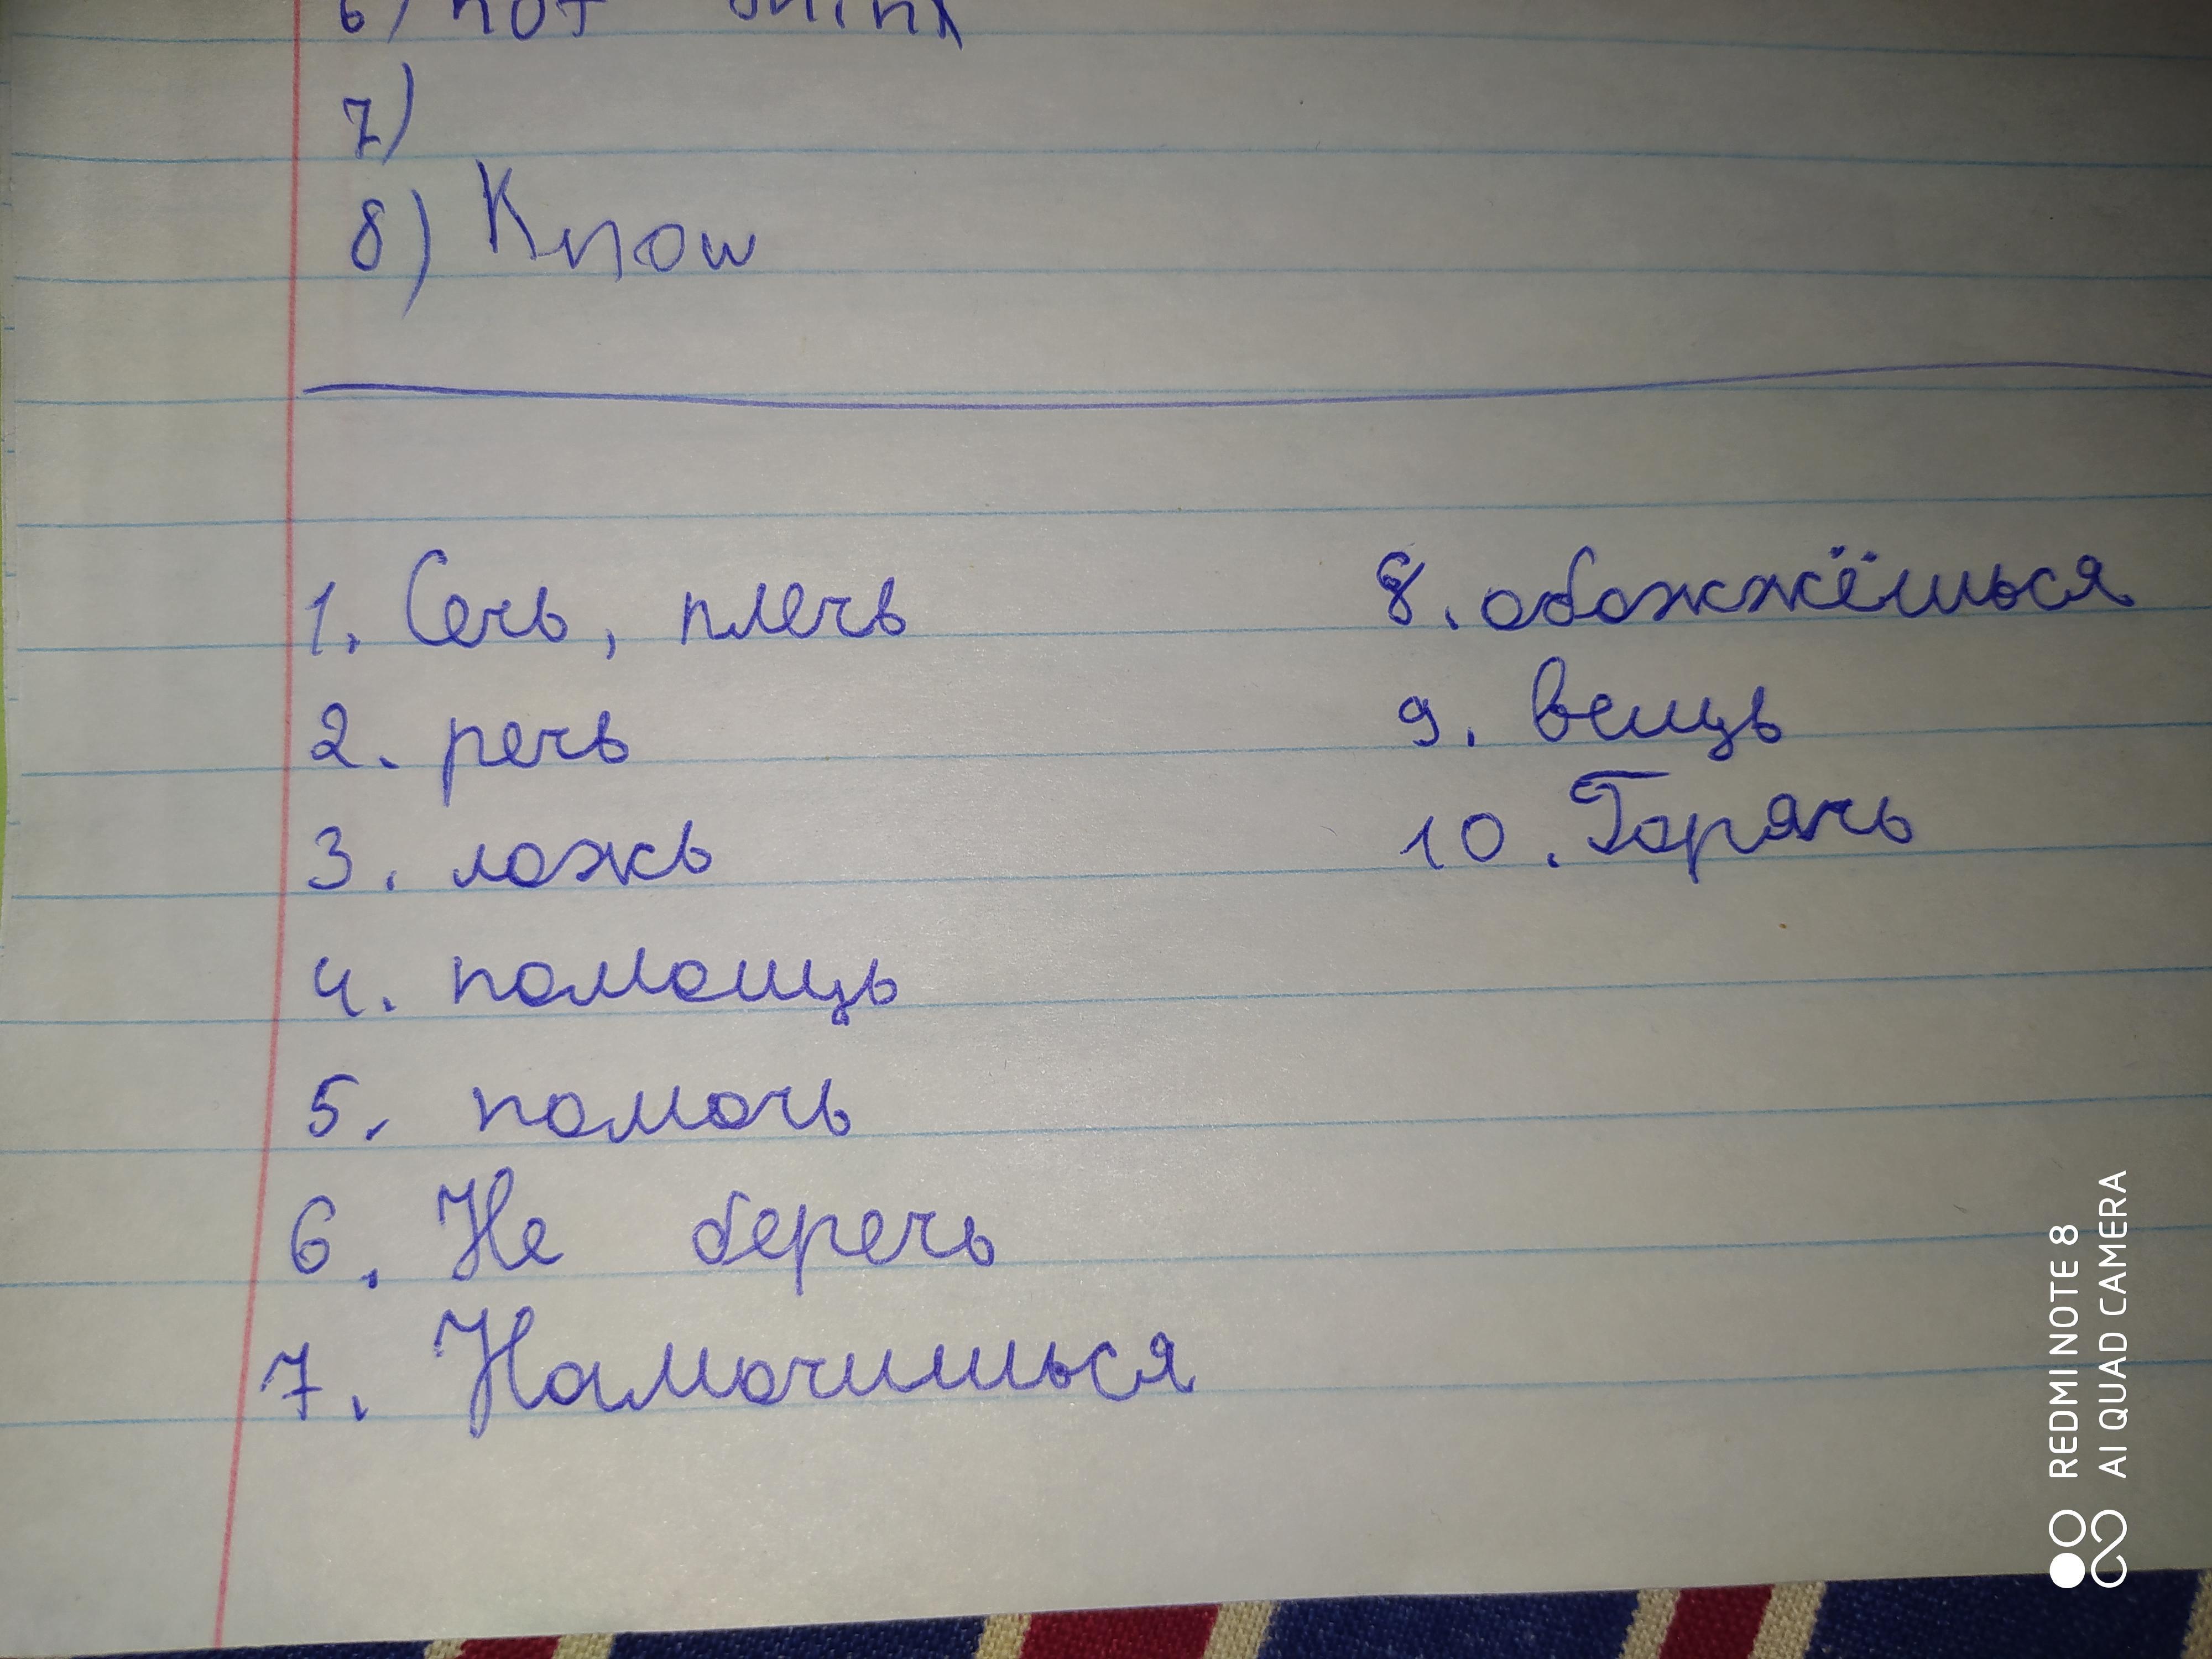 6) not
7)
8) Know
1. Сечь, плечь
2. речь
3. ложь
4. помощь
5. помочь
6. Не беречь
7. Намочишься
8. обожжёшься
9. вещь
10. Горячь
REDMI NOTE 8
AI QUAD CAMERA